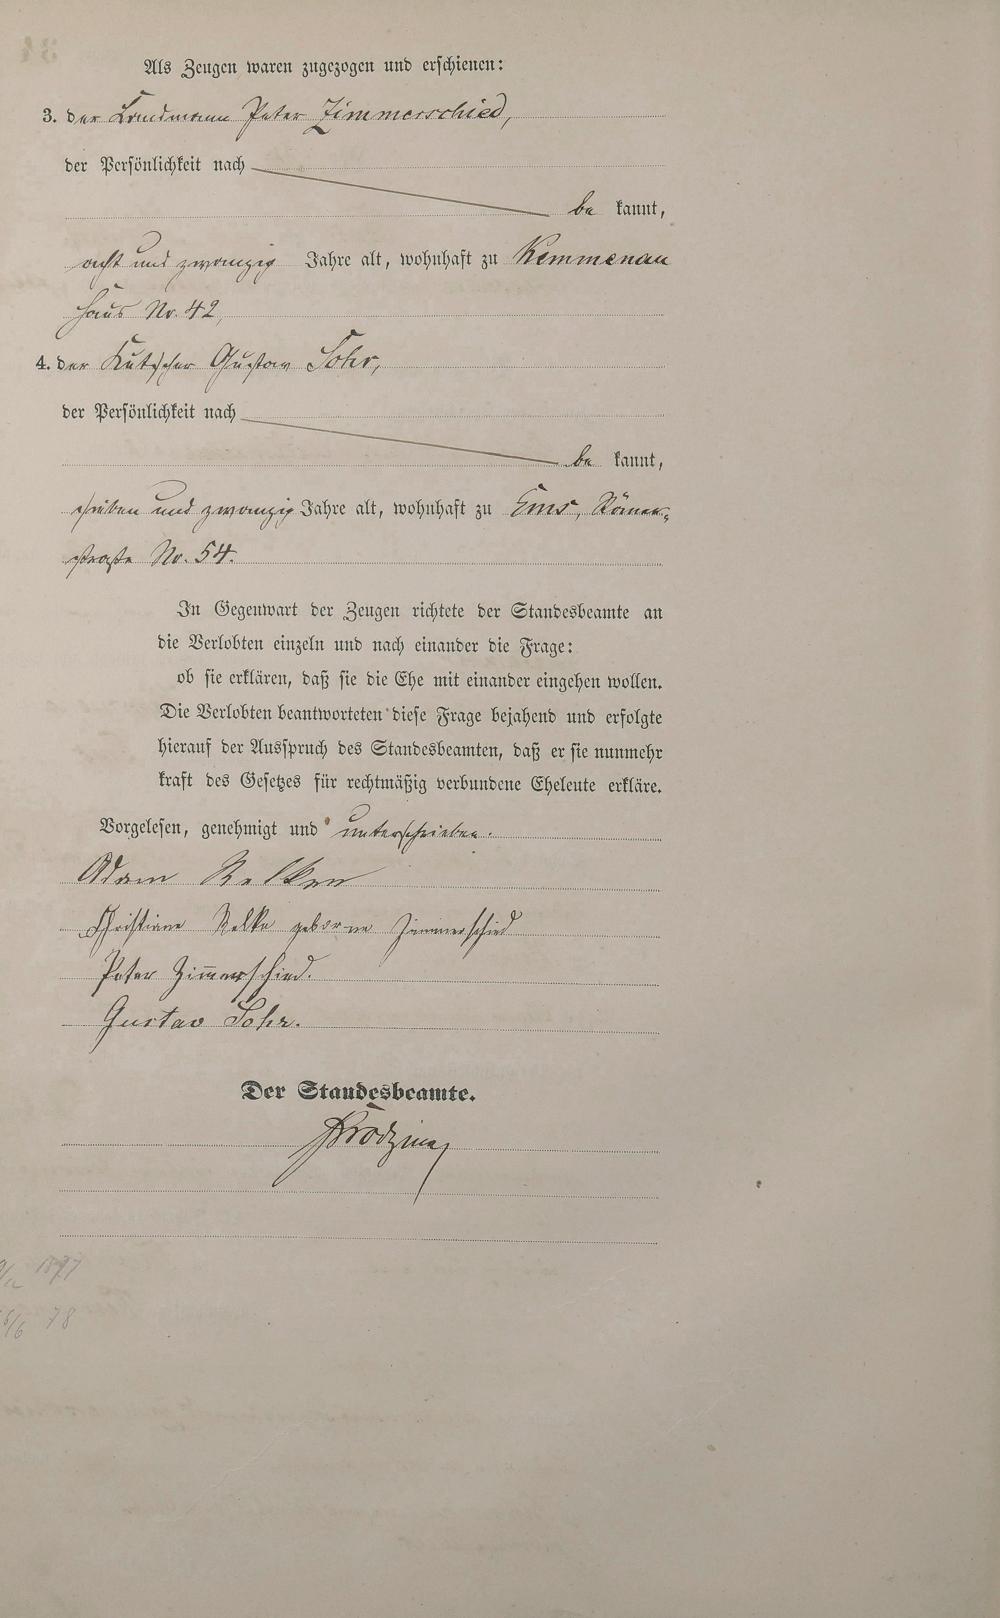 Als Zeugen waren zugezogen und erschienen:
3. der Landmann Peter Zimmerschied,
der Persönlichkeit nach
be kannt,
acht und zwanzig Jahre alt, wohnhaft zu Kemmenau
Haus No. 42,
4. der Kutscher Gustav Sohr,
der Persönlichkeit nach
be kannt,
sieben und zwanzig Jahre alt, wohnhaft zu Ems, Römer-
straße No. 54.
In Gegenwart der Zeugen richtete der Standesbeamte an
die Verlobten einzeln und nach einander die Frage:
ob sie erklären, daß sie die Ehe mit einander eingehen wollen.
Die Verlobten beantworteten diese Frage bejahend und erfolgte
hierauf der Ausspruch des Standesbeamten, daß er sie nunmehr
kraft des Gesetzes für rechtmäßig verbundene Eheleute erkläre.
Vorgelesen, genehmigt und unterschrieben.
Adam
Christiane geborne Zimmerschied
Peter Zimmerschied.
Gustav Sohr.
Der Standesbeamte.
1897
78